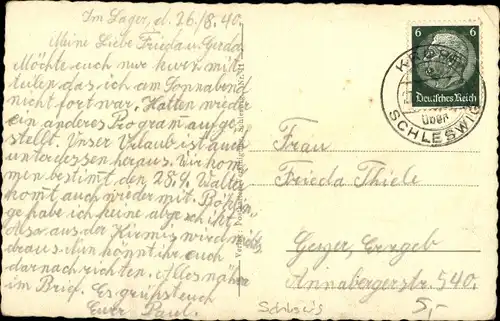 Im Lager, d. 26/8. 40.
Meine Liebe Frieda u. Gerda
Möchte euch nur kurz mit-
teilen das ich am Sonnabend
nicht fort war. Hatten wieder
ein anderes Programm aufge-
stellt. Unser Urlaub ist auch
unterdessen heraus. Wir kom-
men bestimt den 28.9. Walter
komt auch wieder mit.
ge habe ich keine abgeschikt
Also aus der Kirmis wird nichts
draus. Nun könnt ihr euch
darnach richten. Alles nähere
im Brief. Es grüßt euch
Euer Paul.
6 6
Deutsches Reich
über
SCHLESWIG
Frau
Frieda Thiele
Geyer, Erzgeb
Annabergerstr. 540.
5,-